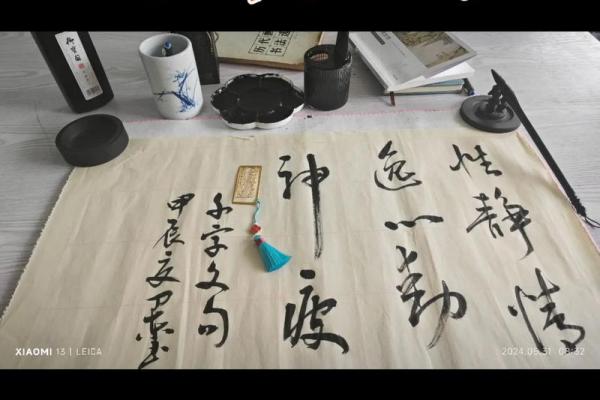 性静情
逸心動
神疲
千字文句
甲辰夏
历代
书法
XIAOMI 13 | LEICA
2024.05.31 08:32